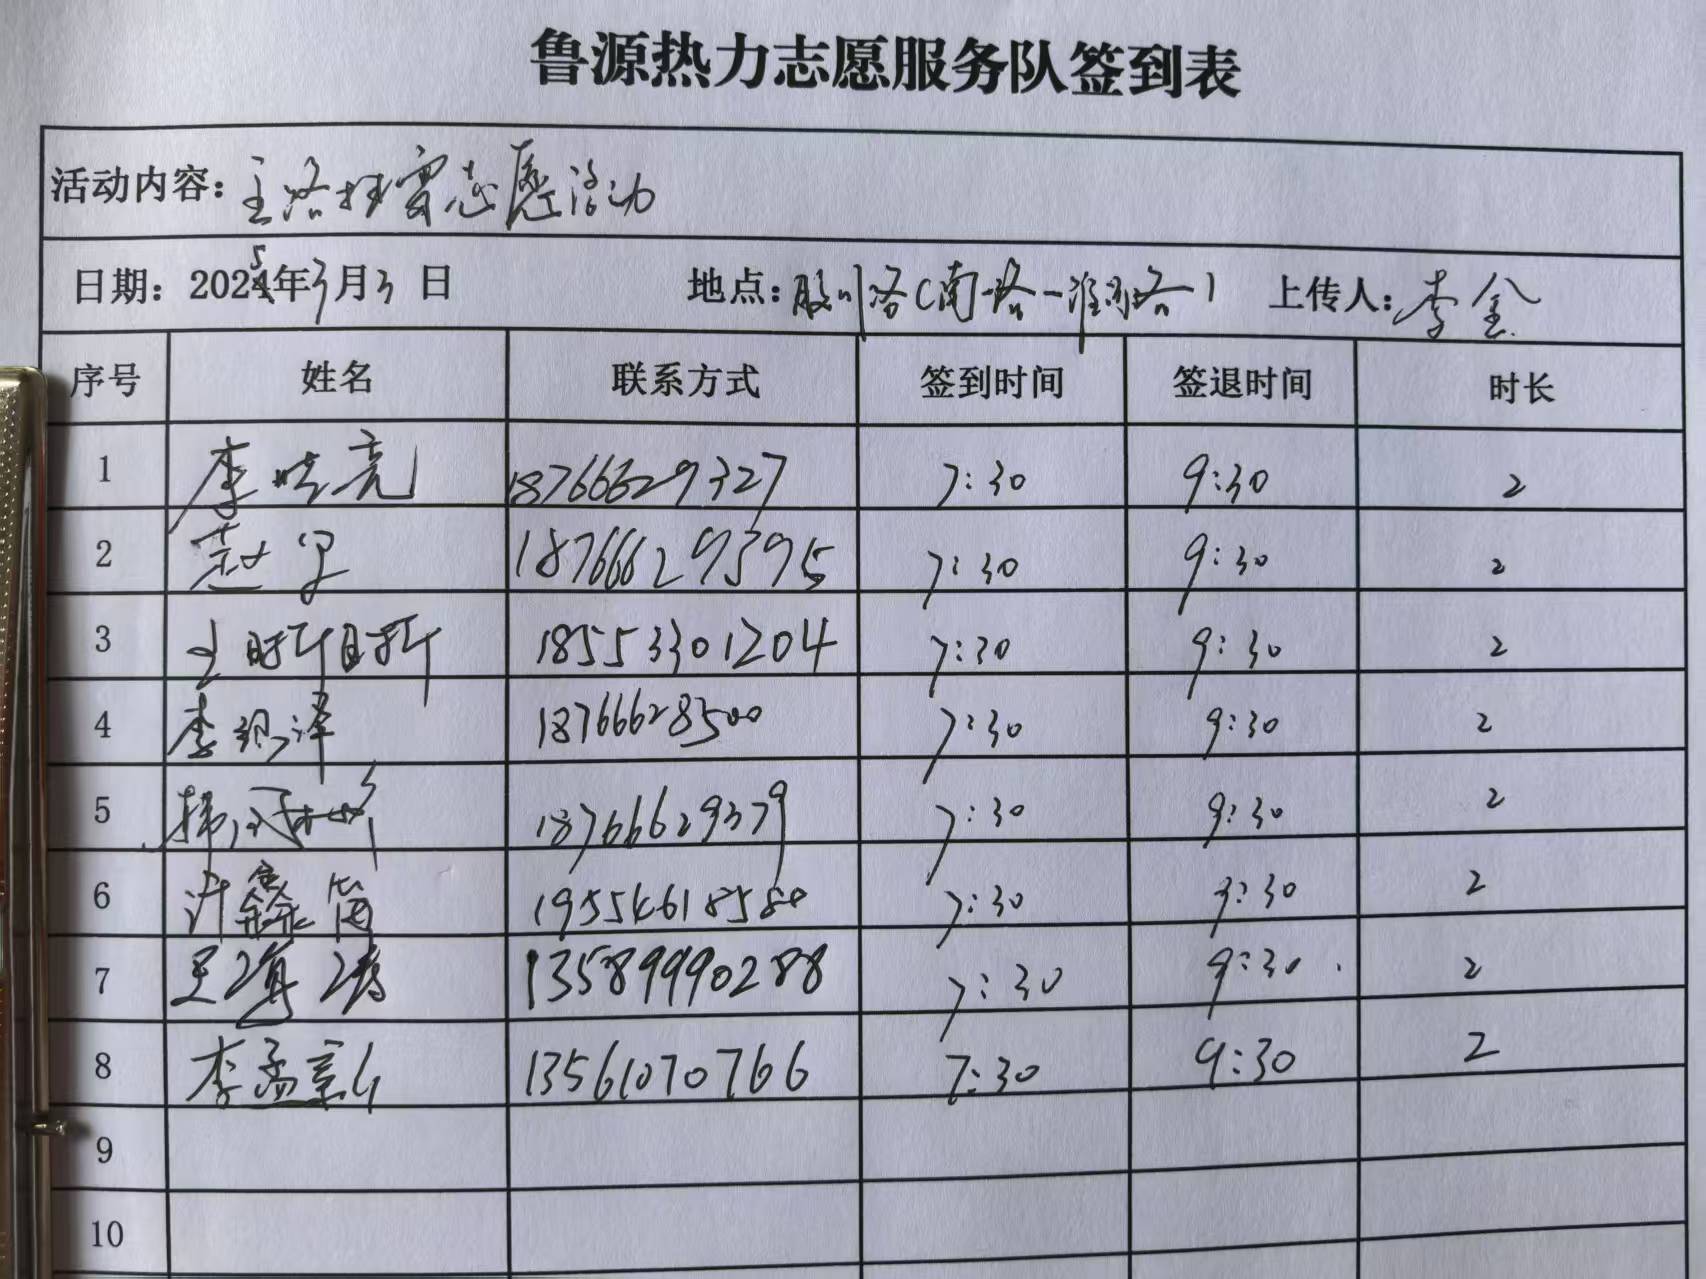 鲁源热力志愿服务队签到表
活动内容：主路扫雪志愿活动
日期：2025年3月3日 地点：殷川路(南路一淮河路) 上传人：李金
序号 姓名 联系方式 签到时间 签退时间 时长
1 李 亮 18766629327 7:30 9:30 2
2 赵 18766629395 7:30 9:30 2
3 王昕昕 18553301204 7:30 9:30 2
4 李 泽 18766628500 7:30 9:30 2
5 韩 18766629379 7:30 9:30 2
6 许鑫 19554618580 7:30 9:30 2
7 王海涛 13589990288 7:30 9:30 2
8 李孟 13561070766 7:30 9:30 2
9
10